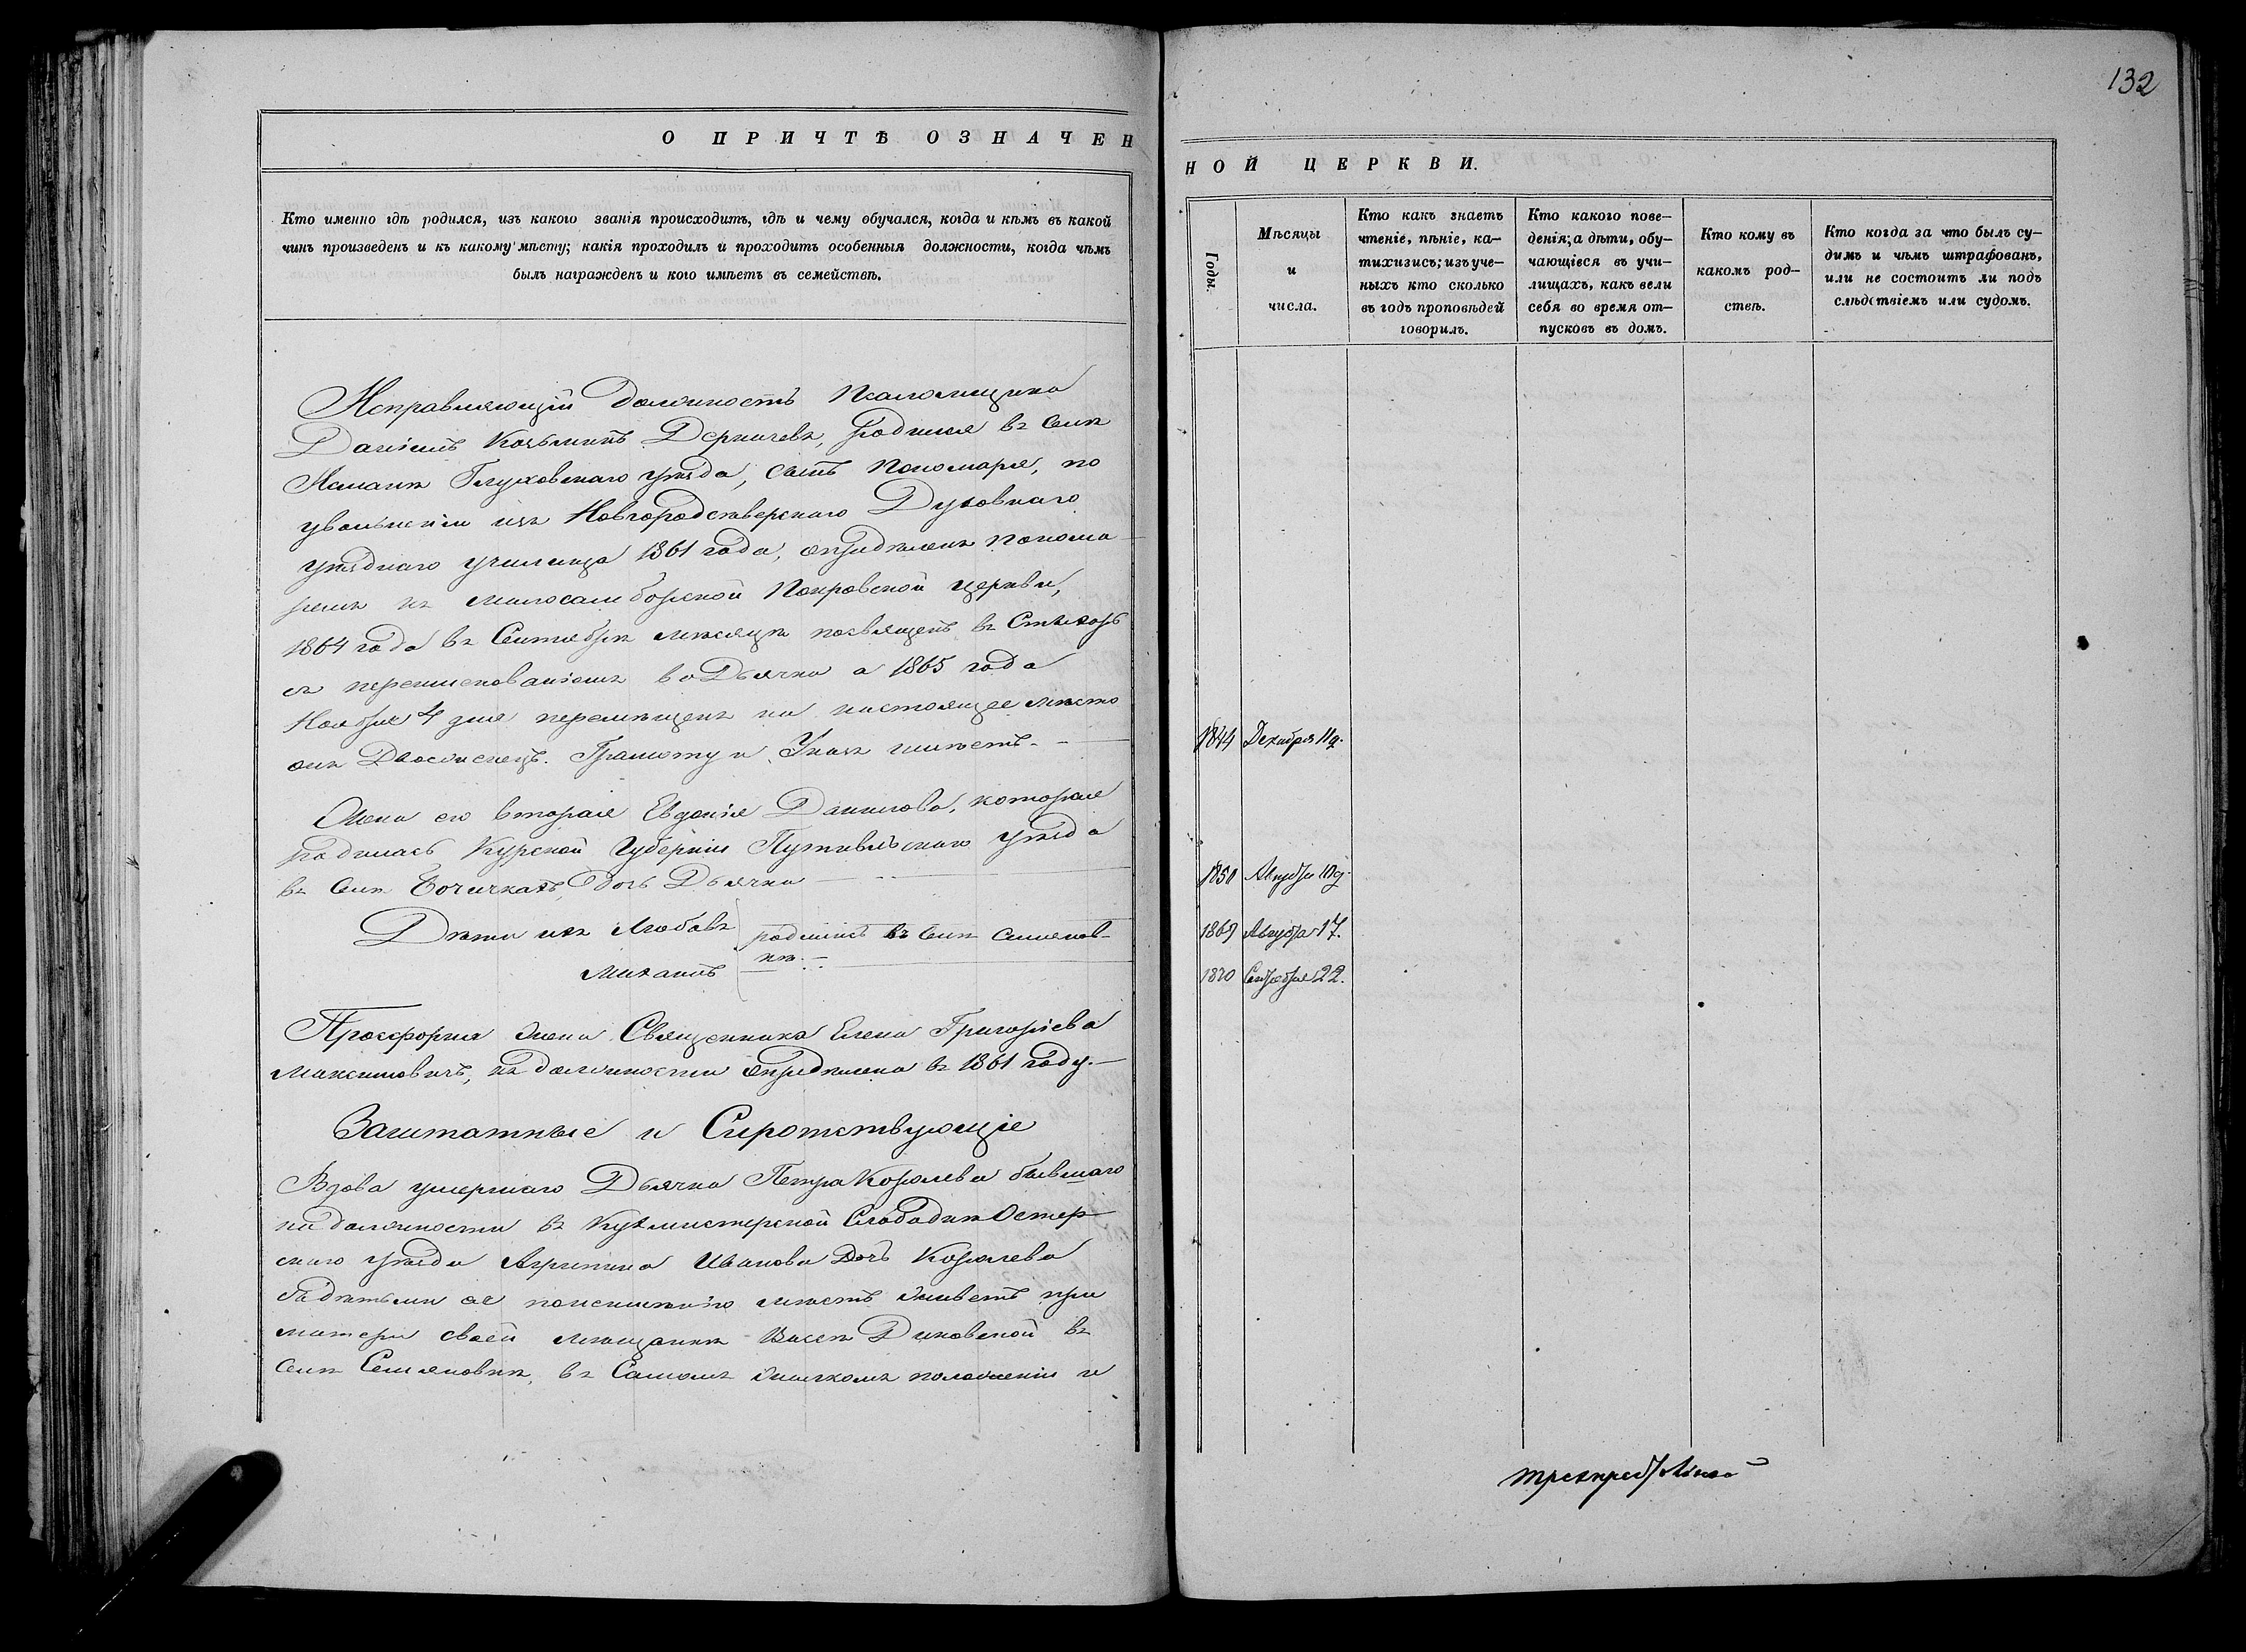 132
О ПРИЧТѢ ОЗНАЧЕН
НОЙ ЦЕРКВИ.
Кто именно гдѣ родился, изъ какого званія происходитъ, гдѣ и чему обучался, когда и кѣмъ въ какой
чинъ произведенъ и къ какому мѣсту; какія проходилъ и проходитъ особенныя должности, когда чѣмъ
былъ награжденъ и кого имѣетъ въ семействѣ.
Исправляющій должность Псаломщика
Даніилъ Козьминъ Деркачевъ, родился въ селѣ
Глуховскаго уѣзда, сынъ Пономаря, по
увольненіи изъ Новгородсѣверскаго Духовнаго
уѣзднаго училища 1861 года, опредѣленъ понома-
ремъ къ Малосамборской Покровской церкви,
1864 года въ Сентябрѣ мѣсяцѣ посвященъ въ Стихарь
съ переименованіемъ во Дьячки а 1865 года
Ноября 4 дня перемѣщенъ на настоящее мѣсто
онъ Двоеженецъ. Грамоту и Указъ имѣетъ. —
Жена его вторая Евдокія Данилова, которая
родилась Курской Губерніи Путивльскаго уѣзда
въ селѣ Бочечкахъ, дочь Дьячка —
Дѣти ихъ Любовь
Михаилъ
родились въ селѣ Семянов-
кѣ. —
Просфорня жена Священника Елена Григоріева
Максимовичъ, къ должности опредѣлена въ 1861 году. —
Заштатные и Сиротствующіе
Вдова умершаго Дьячка Петра Королева бывшаго
на должности въ Кухмистерской Слободѣ Остер-
скаго уѣзда Агрипина Иванова дочь Королева
съ дѣтьми ея поименно живетъ при
матери своей мѣщанкѣ Диковской въ
селѣ Семяновкѣ, въ самомъ положеніи и
Годы.
Мѣсяцы
и
числа.
Кто какъ знаетъ
чтеніе, пѣніе, ка-
тихизисъ; изъ уче-
ныхъ кто сколько
въ годъ проповѣдей
говорилъ.
Кто какого пове-
денія; а дѣти, обу-
чающіеся въ учи-
лищахъ, какъ вели
себя во время от-
пусковъ въ домъ.
Кто кому въ
какомъ род-
ствѣ.
Кто когда за что былъ су-
димъ и чѣмъ штрафованъ,
или не состоитъ ли подъ
слѣдствіемъ или судомъ.
1844 Декабря 11 д.
1850 Августа 10 д.
1869 Августа 17.
1870 Сентября 22.